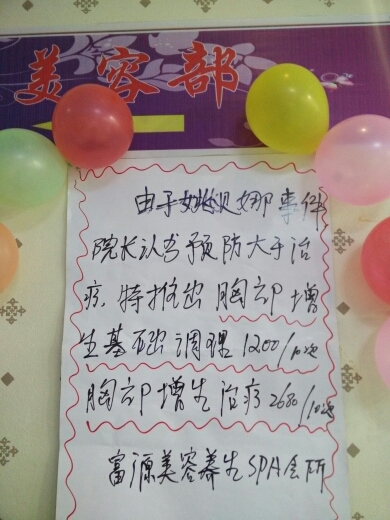 美容部
由于姚贝娜事件
院长认为预防大于治
疗.特推出胸部增
生基础调理1200/10次
胸部增生治疗2680/10次
富源美容养生SPA会所